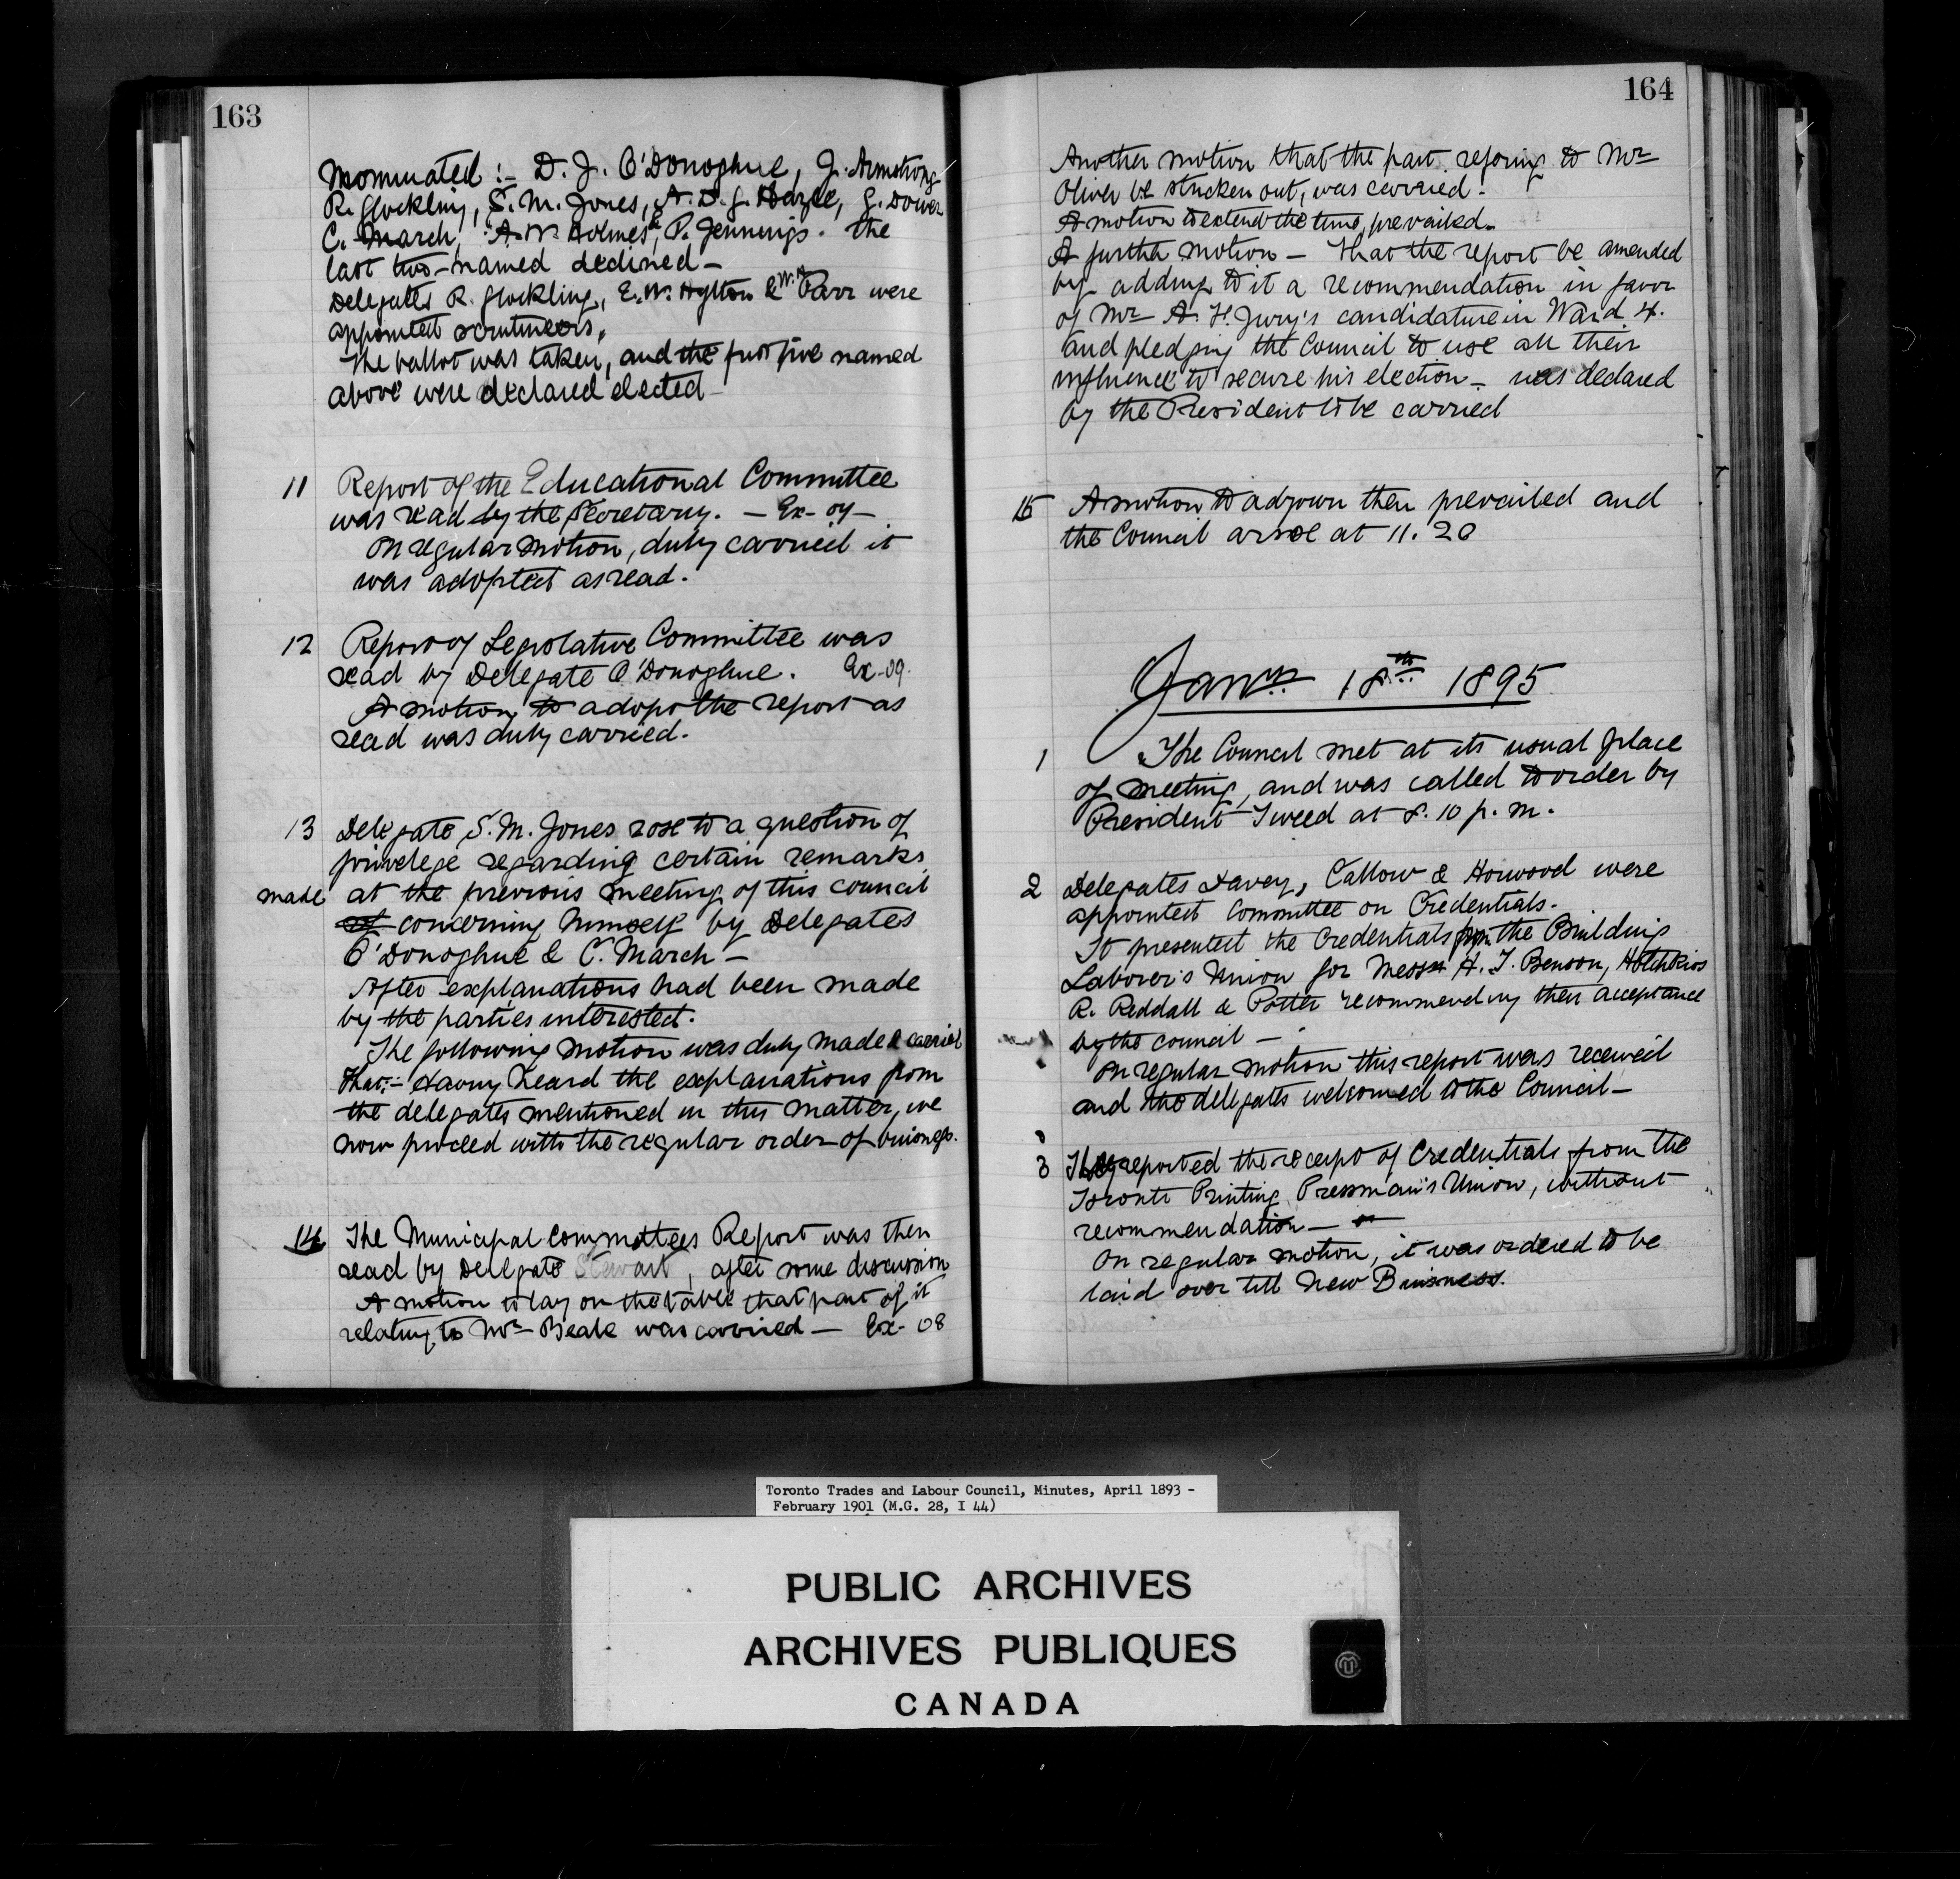 163
nominated :- D. J. O'Donoghue, J. Armstrong
R. Glockling, S. M. Jones, A. D. G. Hazle, G. Dower
C. March, A. W. Holmes & P. Jennings. the
last two-named declined -
Delegates R. Glockling, E. W. Hylton & W. Parr were
appointed scrutineers.
The ballot was taken, and the first five named
above were declared elected -
11 Report of the Educational Committee
was read by the Secretary. - Ex-
On regular motion, duly carried it
was adopted as read.
12 Report of Legislative Committee was
read by Delegate O'Donoghue. Ex-09.
A motion to adopt the report as
read was duly carried.
13 Delegate S. M. Jones rose to a question of
privelege regarding certain remarks
made at the previous meeting of this council
of concerning himself by Delegates
O'Donoghue & C. March -
After explanations had been made
by the parties interested.
The following motion was duly made & carried
That:- Having heard the explanations from
the delegates mentioned in this matter, we
now proceed with the regular order of buisness.
14 The Municipal Committees Report was then
read by Delegate Stewart, after some discussion
A motion to lay on the table that part of it
relating to Mr Beale was carried - Ex- 08
164
Another motion that the part refering to Mr
Oliver be stricken out, was carried.
A motion to extend the time, prevailed.
A further motion - that the report be amended
by adding to it a recommendation in favor
of Mr A. H. Jury's candidature in Ward 4.
and pledging the Council to use all their
influence to secure his election - was declared
by the President to be carried
15 A motion to adjourn then prevailed and
the Council arose at 11.20
Jany 18th 1895
1 The Council met at its usual place
of meeting, and was called to order by
President Tweed at 8.10 p.m.
2 Delegates Davey, Callow & Horwood were
appointed Committee on Credentials.
It presented the Credentials from the Building
Laborer's Union for Messrs H. T. Benson, Hotchkiss
R. Reddall & Potter recommending their acceptance
by the council -
On regular motion this report was received
and the delegates welcomed to the Council -
3 They reported the receipt of Credentials from the
Toronto Printing Pressman's Union, without
recommendation -
On regular motion, it was ordered to be
laid over till New Buisness.
Toronto Trades and Labour Council, Minutes, April 1893 -
February 1901 (M.G. 28, I 44)
PUBLIC ARCHIVES
ARCHIVES PUBLIQUES
CANADA